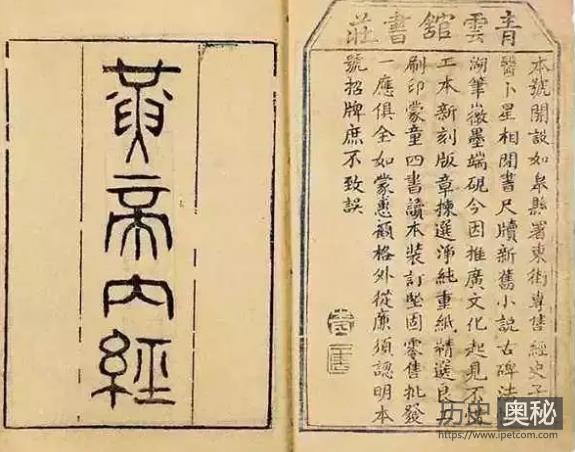 青雲舘書莊
本號開設如皋縣署東街專售經史子
醫卜星相閒書尺牘新舊小説古碑法
湖筆徽墨端硯今因推廣文化起見不
工本新刻版章揀選淨純重紙精選良
刷印蒙童四書讀本裝訂堅固零售批發
一應俱全如蒙惠顧格外從廉須認明本
號招牌庶不致誤
黃帝內經
历史奥秘
https://www.ipetcom.com